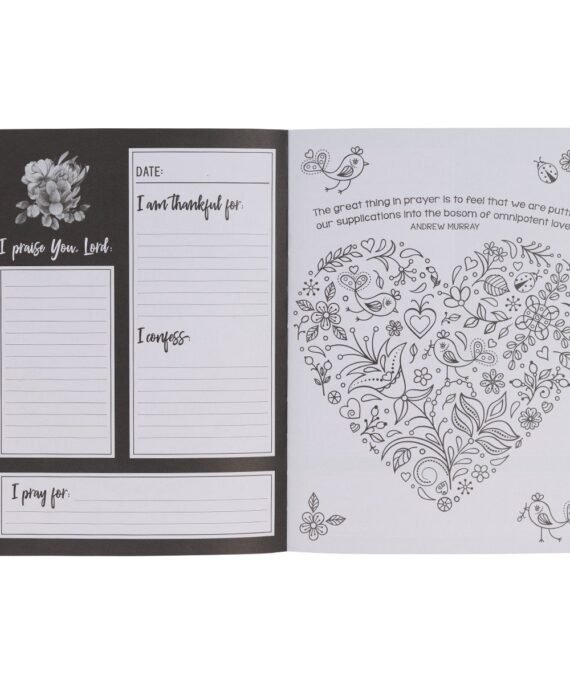 I praise You, Lord:
DATE:
I am thankful for:
I confess:
I pray for:
The great thing in prayer is to feel that we are
our supplications into the bosom of omnipotent love
ANDREW MURRAY